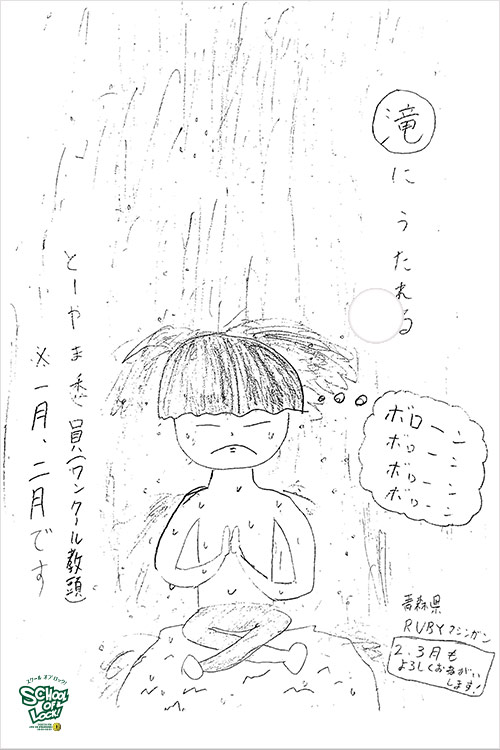 滝にうたれる
とーやま委員(ワンクール教頭)
※一月、二月です
ボローン
ボローン
ボローン
ボローン
青森県
RUBYクンガン
2.3月も
よろしくおねがい
します!
スクール オブ ロック!
SCHOOL
OF
LOCK!